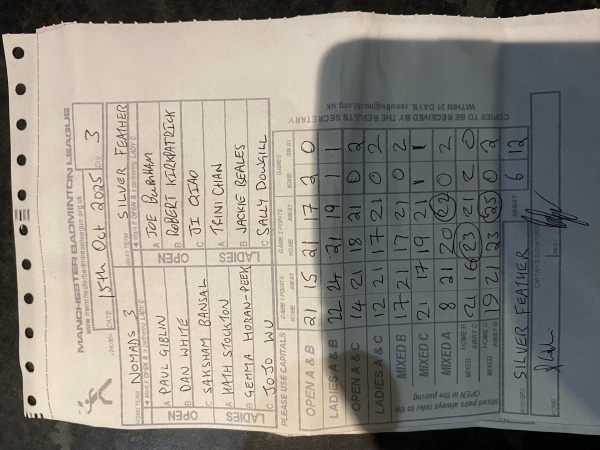 MANCHESTER BADMINTON LEAGUE
www.manchesterbadmintonleague.org.uk
DATE 15th Oct 2025 DIV. 3
HOME TEAM NOMADS 3
AWAY TEAM SILVER FEATHER
OPEN
A PAUL GIBLIN
A JOE BURNHAM
B DAN WHITE
B ROBERT KIRKPATRICK
C SAKSHAM BANSAL
C JI QIAO
LADIES
A HATH STOCKTON
A TRINI CHAN
B GEMMA HORAN-PEEK
B JACKIE BEALES
C JOJO WU
C SALLY DOWGILL
PLEASE USE CAPITALS
GAME 1 POINTS GAME 2 POINTS GAMES
HOME AWAY HOME AWAY HOME AWAY
OPEN A & B 21 15 21 17 2 0
LADIES A & B 22 24 21 19 1 1
OPEN A & C 14 21 18 21 0 2
LADIES A & C 12 21 17 21 0 2
MIXED B 17 21 17 21 0 2
MIXED C 21 17 19 21 1 1
MIXED A 8 21 20 22 0 2
MIXED HOME B AWAY C 21 16 23 21 2 0
MIXED HOME C AWAY B 19 21 23 25 0 2
WINNERS SILVER FEATHER RESULT 6 12
CAPTAINS SIGNATURES
HOME
AWAY
Mixed pairs always refer to the OPEN in the pairing
COPIES TO BE RECEIVED BY THE RESULTS SECRETARY
WITHIN 21 DAYS.